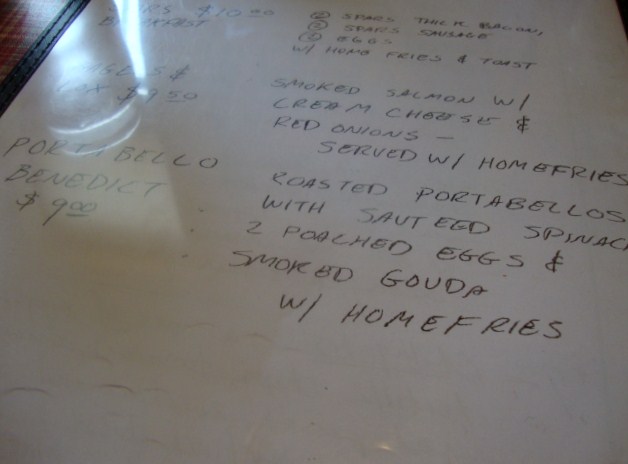 $10.00
BREAKFAST
② SPARS THICK BACON,
② SPARS SAUSAGE
② EGGS
W/ HOME FRIES & TOAST
&
$9.50
SMOKED SALMON W/
CREAM CHEESE &
RED ONIONS —
SERVED W/ HOMEFRIES
PORTABELLO
BENEDICT
$9.00
ROASTED PORTABELLOS
WITH SAUTEED SPINACH
2 POACHED EGGS &
SMOKED GOUDA
W/ HOMEFRIES